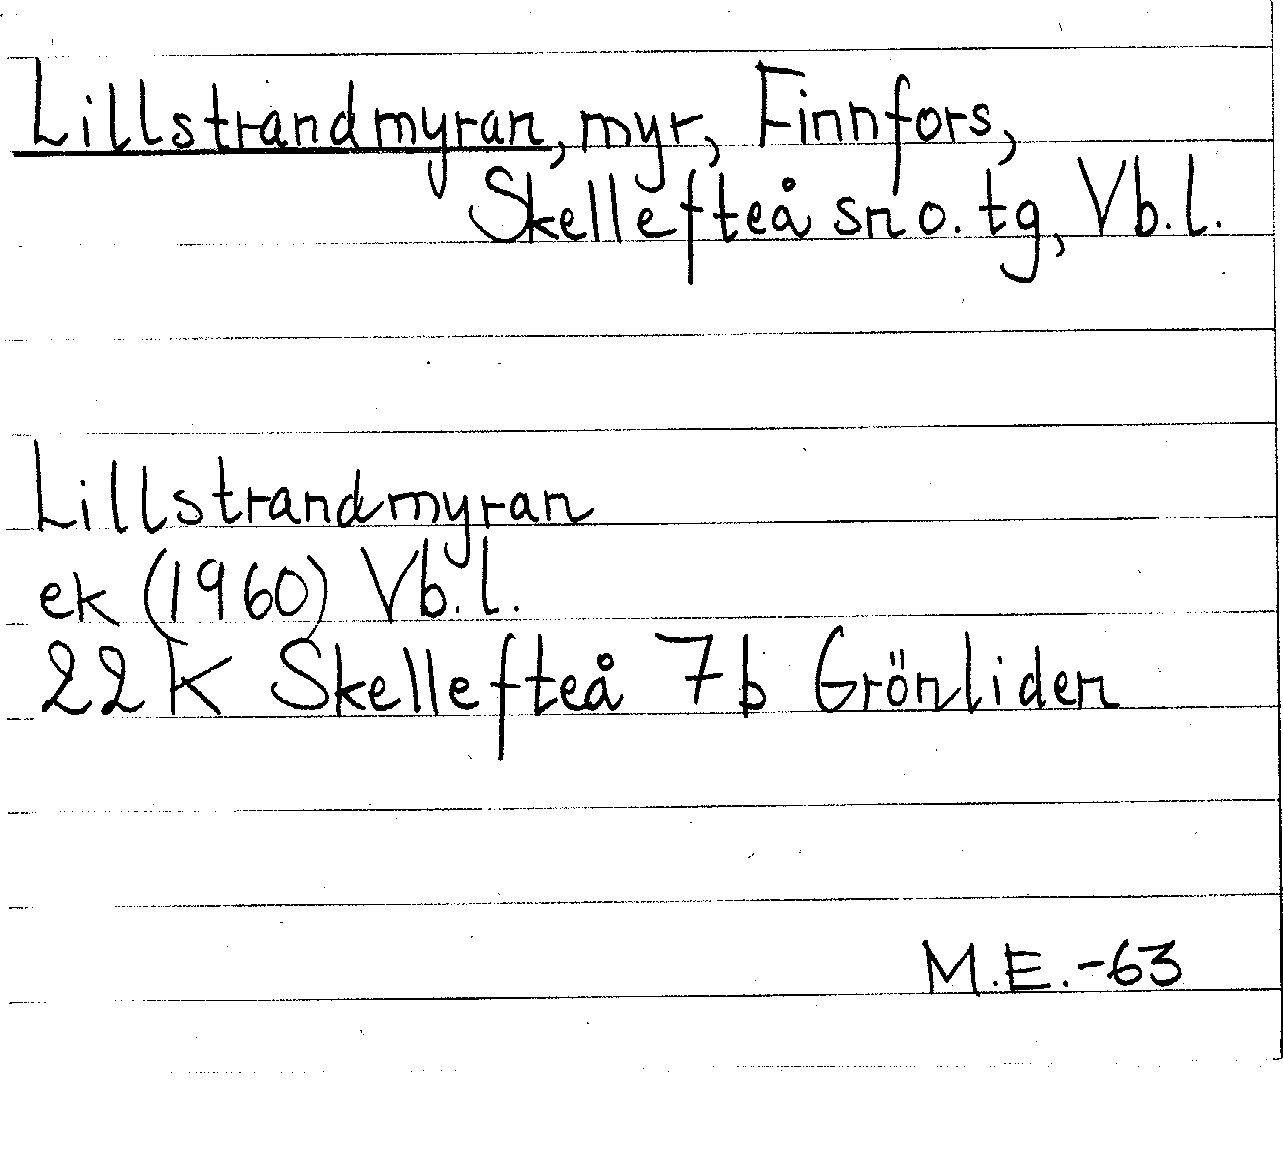 Lillstrandmyran, myr, Finnfors,
Skellefteå sn o. tg, Vb.l.
Lillstrandmyran
ek (1960) Vb.l.
22K Skellefteå 7b Grönliden
M.E.-63